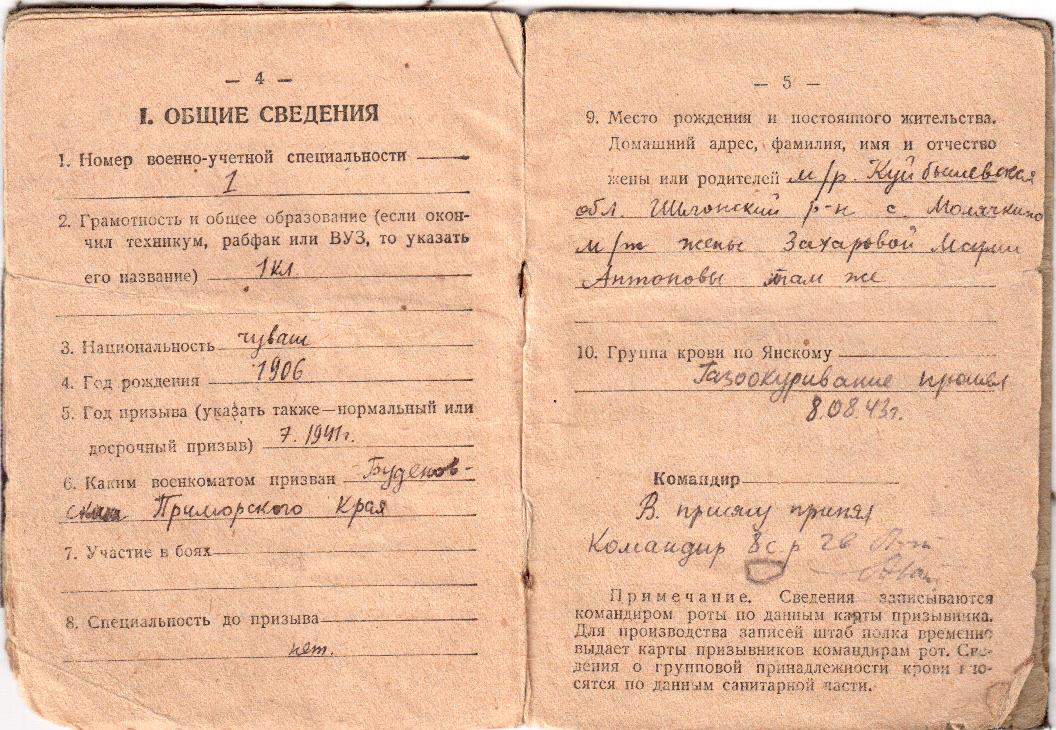 — 4 —
I. ОБЩИЕ СВЕДЕНИЯ
1. Номер военно-учетной специальности
1
2. Грамотность и общее образование (если окон-
чил техникум, рабфак или ВУЗ, то указать
его название) 1 кл.
3. Национальность чуваш
4. Год рождения 1906
5. Год призыва (указать также—нормальный или
досрочный призыв) 7. 1941г.
6. Каким военкоматом призван Буденов-
ским Приморского Края
7. Участие в боях
8. Специальность до призыва
нет.
— 5 —
9. Место рождения и постоянного жительства.
Домашний адрес, фамилия, имя и отчество
жены или родителей м/р. Куйбышевская
обл. Шигонский р-н с. Молячкино
м/ж жены Захаровой Марии
Антоновы там же
10. Группа крови по Янскому
Газоокуривание прошел
8.08.43г.
Командир
В. присягу принял
Командир 8 с р гв
Примечание. Сведения записываются
командиром роты по данным карты призывника.
Для производства записей штаб полка временно
выдает карты призывников командирам рот. Све-
дения о групповой принадлежности крови вно-
сятся по данным санитарной части.